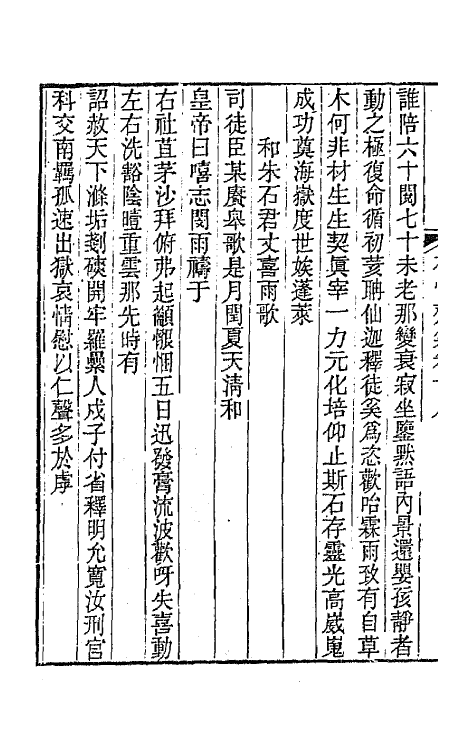 誰陪六十閱七十未老那變衰寂坐鑒默語內景還嬰孩靜者
動之極復命循初荄聃仙迦釋徒奚爲恣歡咍霖雨致有自草
木何非材生生契眞宰一力元化培仰止斯石存靈光高崴嵬
成功奠海嶽度世娭蓬萊
和朱石君丈喜雨歌
司徒臣某賡皋歌是月閏夏天清和
皇帝曰嘻志閔雨禱于
右社苴茅沙拜俯弗起籲悃五日迅發膏流波歡呀失喜動
左右洗豁陰曀重雲那先時有
詔赦天下滌垢剗磢開牢羅纍人戍子付省釋明允寬汝刑官
科交南羈孤速出獄哀情慰以仁聲多於虖